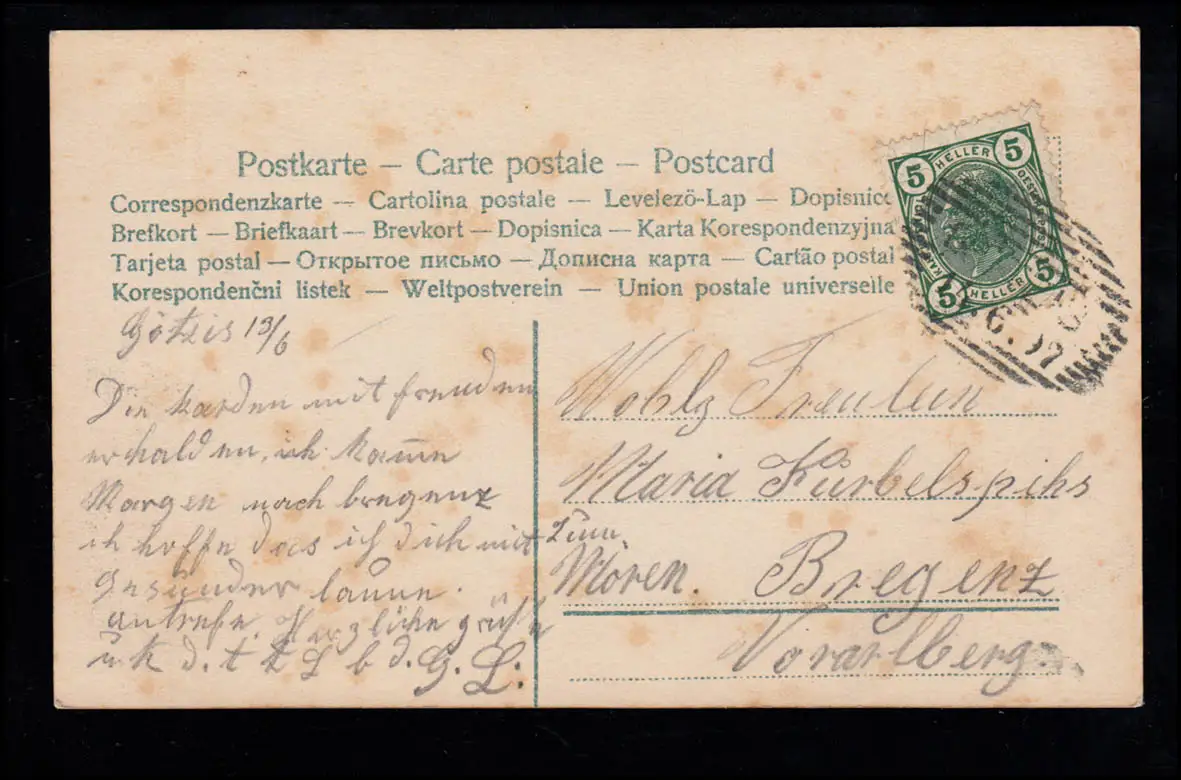 Postkarte – Carte postale – Postcard
Correspondenzkarte – Cartolina postale – Levelező-Lap – Dopisnice
Brefkort – Briefkaart – Brevkort – Dopisnica – Karta Korespondenzyjna
Tarjeta postal – Открытое письмо – Дописна карта – Cartão postal
Korespondenčni listek – Weltpostverein – Union postale universelle
5 HELLER 5
5 HELLER 5
Götzis 13/6
Die karden mit freuden
erhalden, ich komme
Morgen nach bregenz
ich hoffe das ich dich mit
Gesunder laune
antrefe. Herzliche grüße
u. k d. t k L b d. G. L.
Wohlg Freulein
Maria Kürbelspihs
zum
Moren. Bregenz
Vorarlberg.